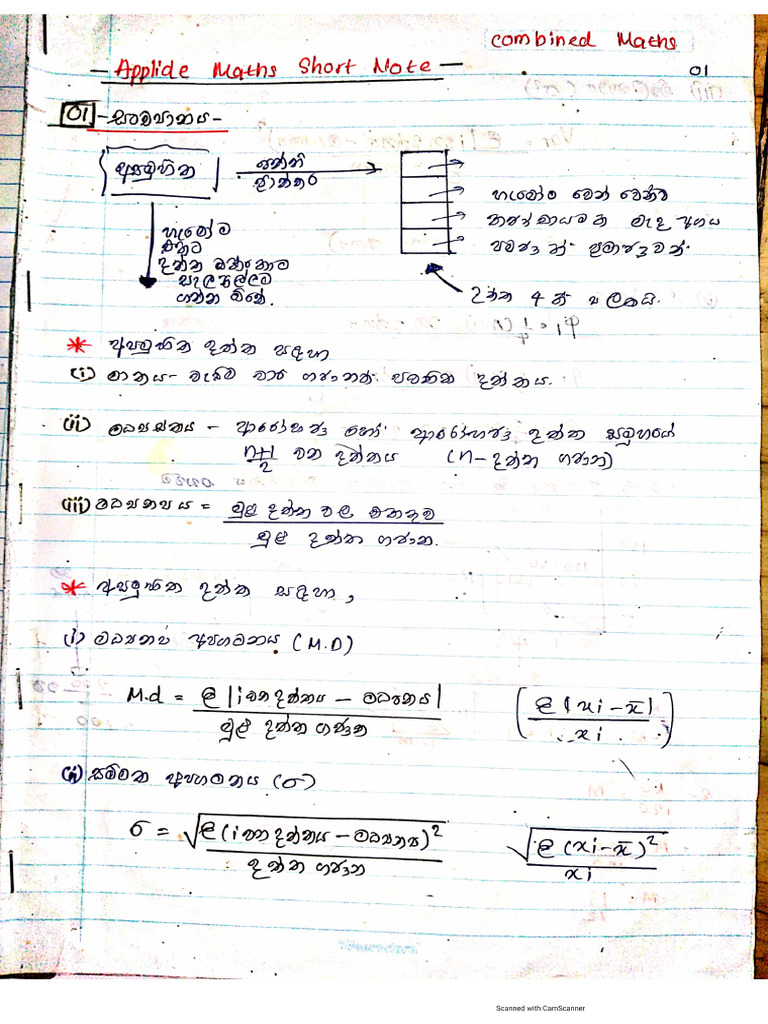 combined Maths
- Applide Maths Short Note -
01
01 - සංඛ්‍යානය -
අසමූහිත
පන්ති
ප්‍රාන්තර
හැමෝම
එකට
දත්ත ඔක්කොම
සැලකිල්ලට
ගන්න ඕනේ.
හැමෝම වෙන් වෙන්ව
මැද අගය
දත්ත 4 ක් පලකයි.
* අසමූහිත දත්ත සඳහා
(i) මාතය - වැඩිම වාර ගණනක් පවතින දත්තය.
(ii) මධ්‍යස්තය - ආරෝහණ හෝ දත්ත සමූහයේ
n+1/2 වන දත්තය (n - දත්ත ගණන)
(iii) මධ්‍යන්‍යය = මුළු දත්ත වල එකතුව
මුළු දත්ත ගණන.
* අසමූහිත දත්ත සඳහා,
(i) මධ්‍යන්‍ය අපගමනය (M.D)
M.d = Σ|i වන දත්තය - මධ්‍යන්‍යය|
මුළු දත්ත ගණන
[Σ|xi - x̄|
xi]
(ii) සම්මත අපගමනය (σ)
σ = √Σ(i වන දත්තය - මධ්‍යන්‍ය)²
දත්ත ගණන
√Σ(xi - x̄)²
xi
Scanned with CamScanner